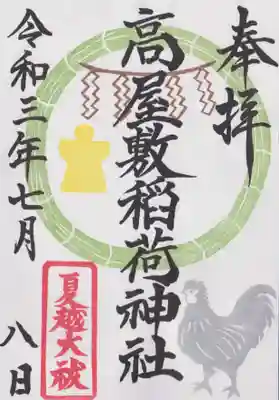 奉拝
高屋敷稲荷神社
令和三年七月八日
夏越大祓